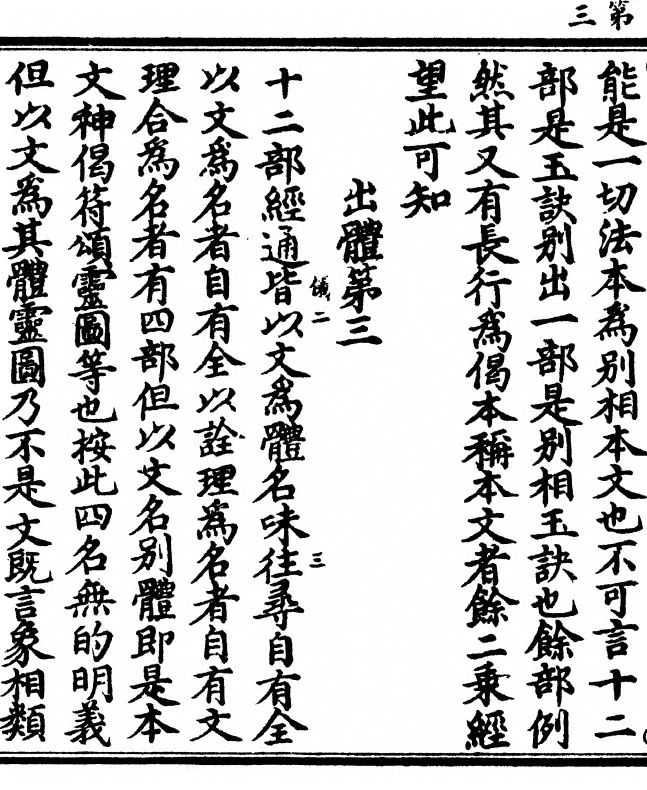 第三
能是一切法本為別相本文也不可言十二
部是玉訣別出一部是別相玉訣也餘部例
然其又有長行為偈本稱本文者餘二乘經
望此可知
出體第三
儀二
十二部經通皆以文為體名味往尋自有全
三
以文為名者自有全以詮理為名者自有文
理合為名者有四部但以文名別體即是本
文神偈符頌靈圖等也按此四名無的明義
但以文為其體靈圖乃不是文既言象相類